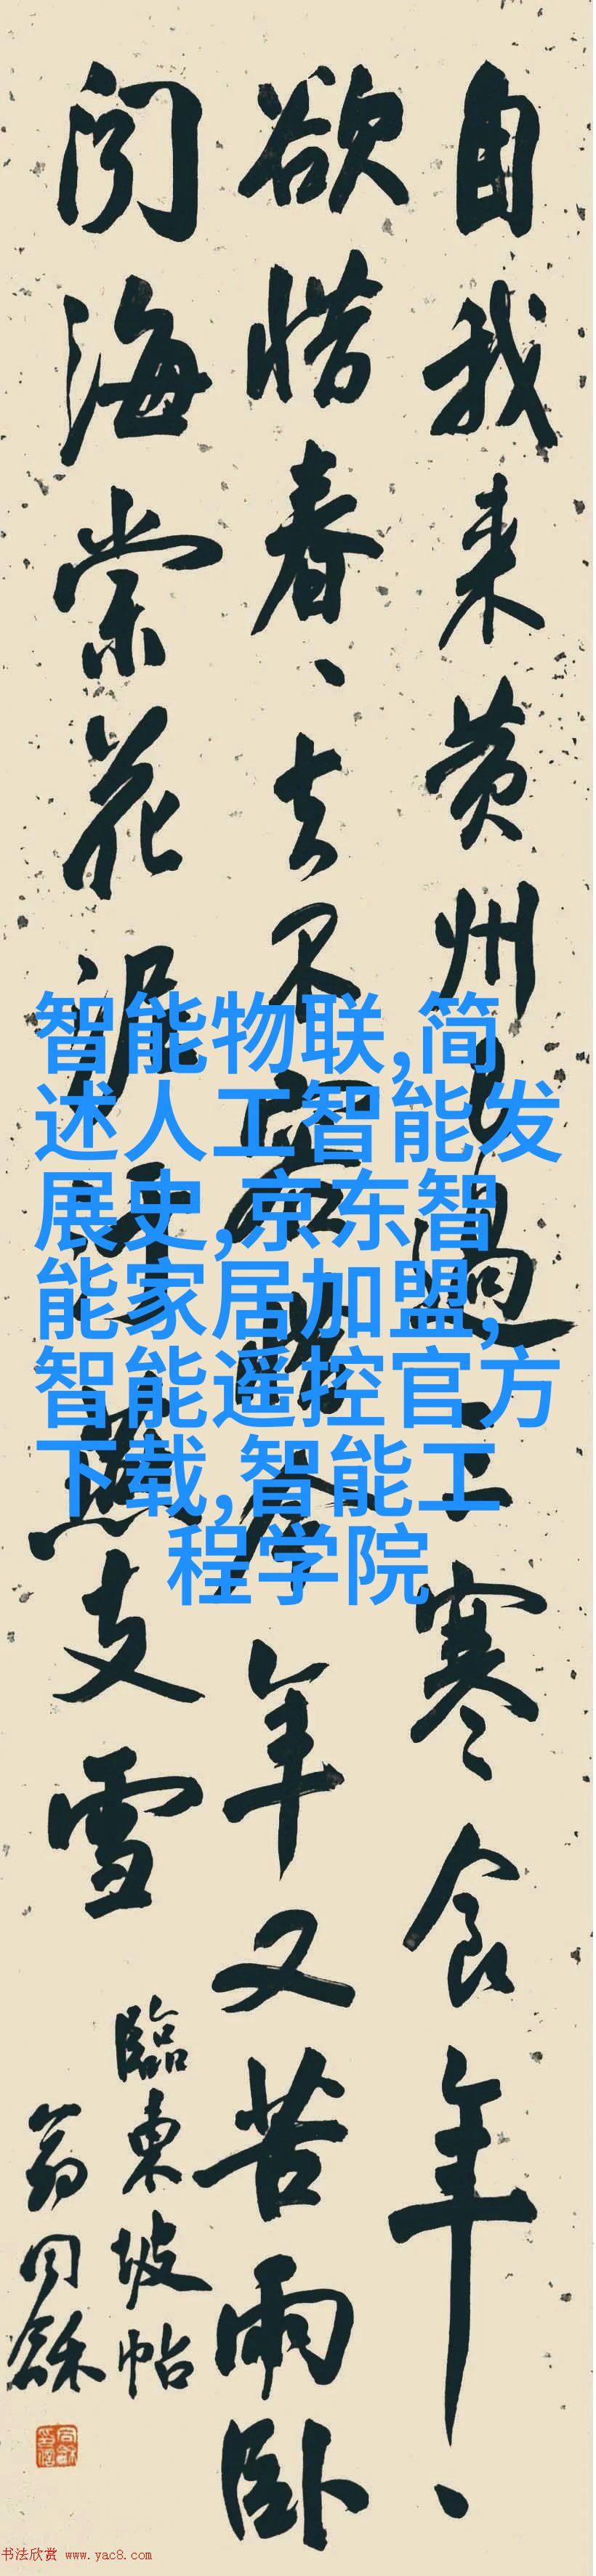 自我来黄州已過三寒食年、
欲惜春、去不容惜今年又苦雨卧
闻海棠花泥汙燕支雪
臨東坡帖
翁同龢
智能物联,简
述人工智能发
展史,京东智
能家居加盟,
智能遥控官方
下载,智能工
程学院
书法欣赏 www.yac8.com